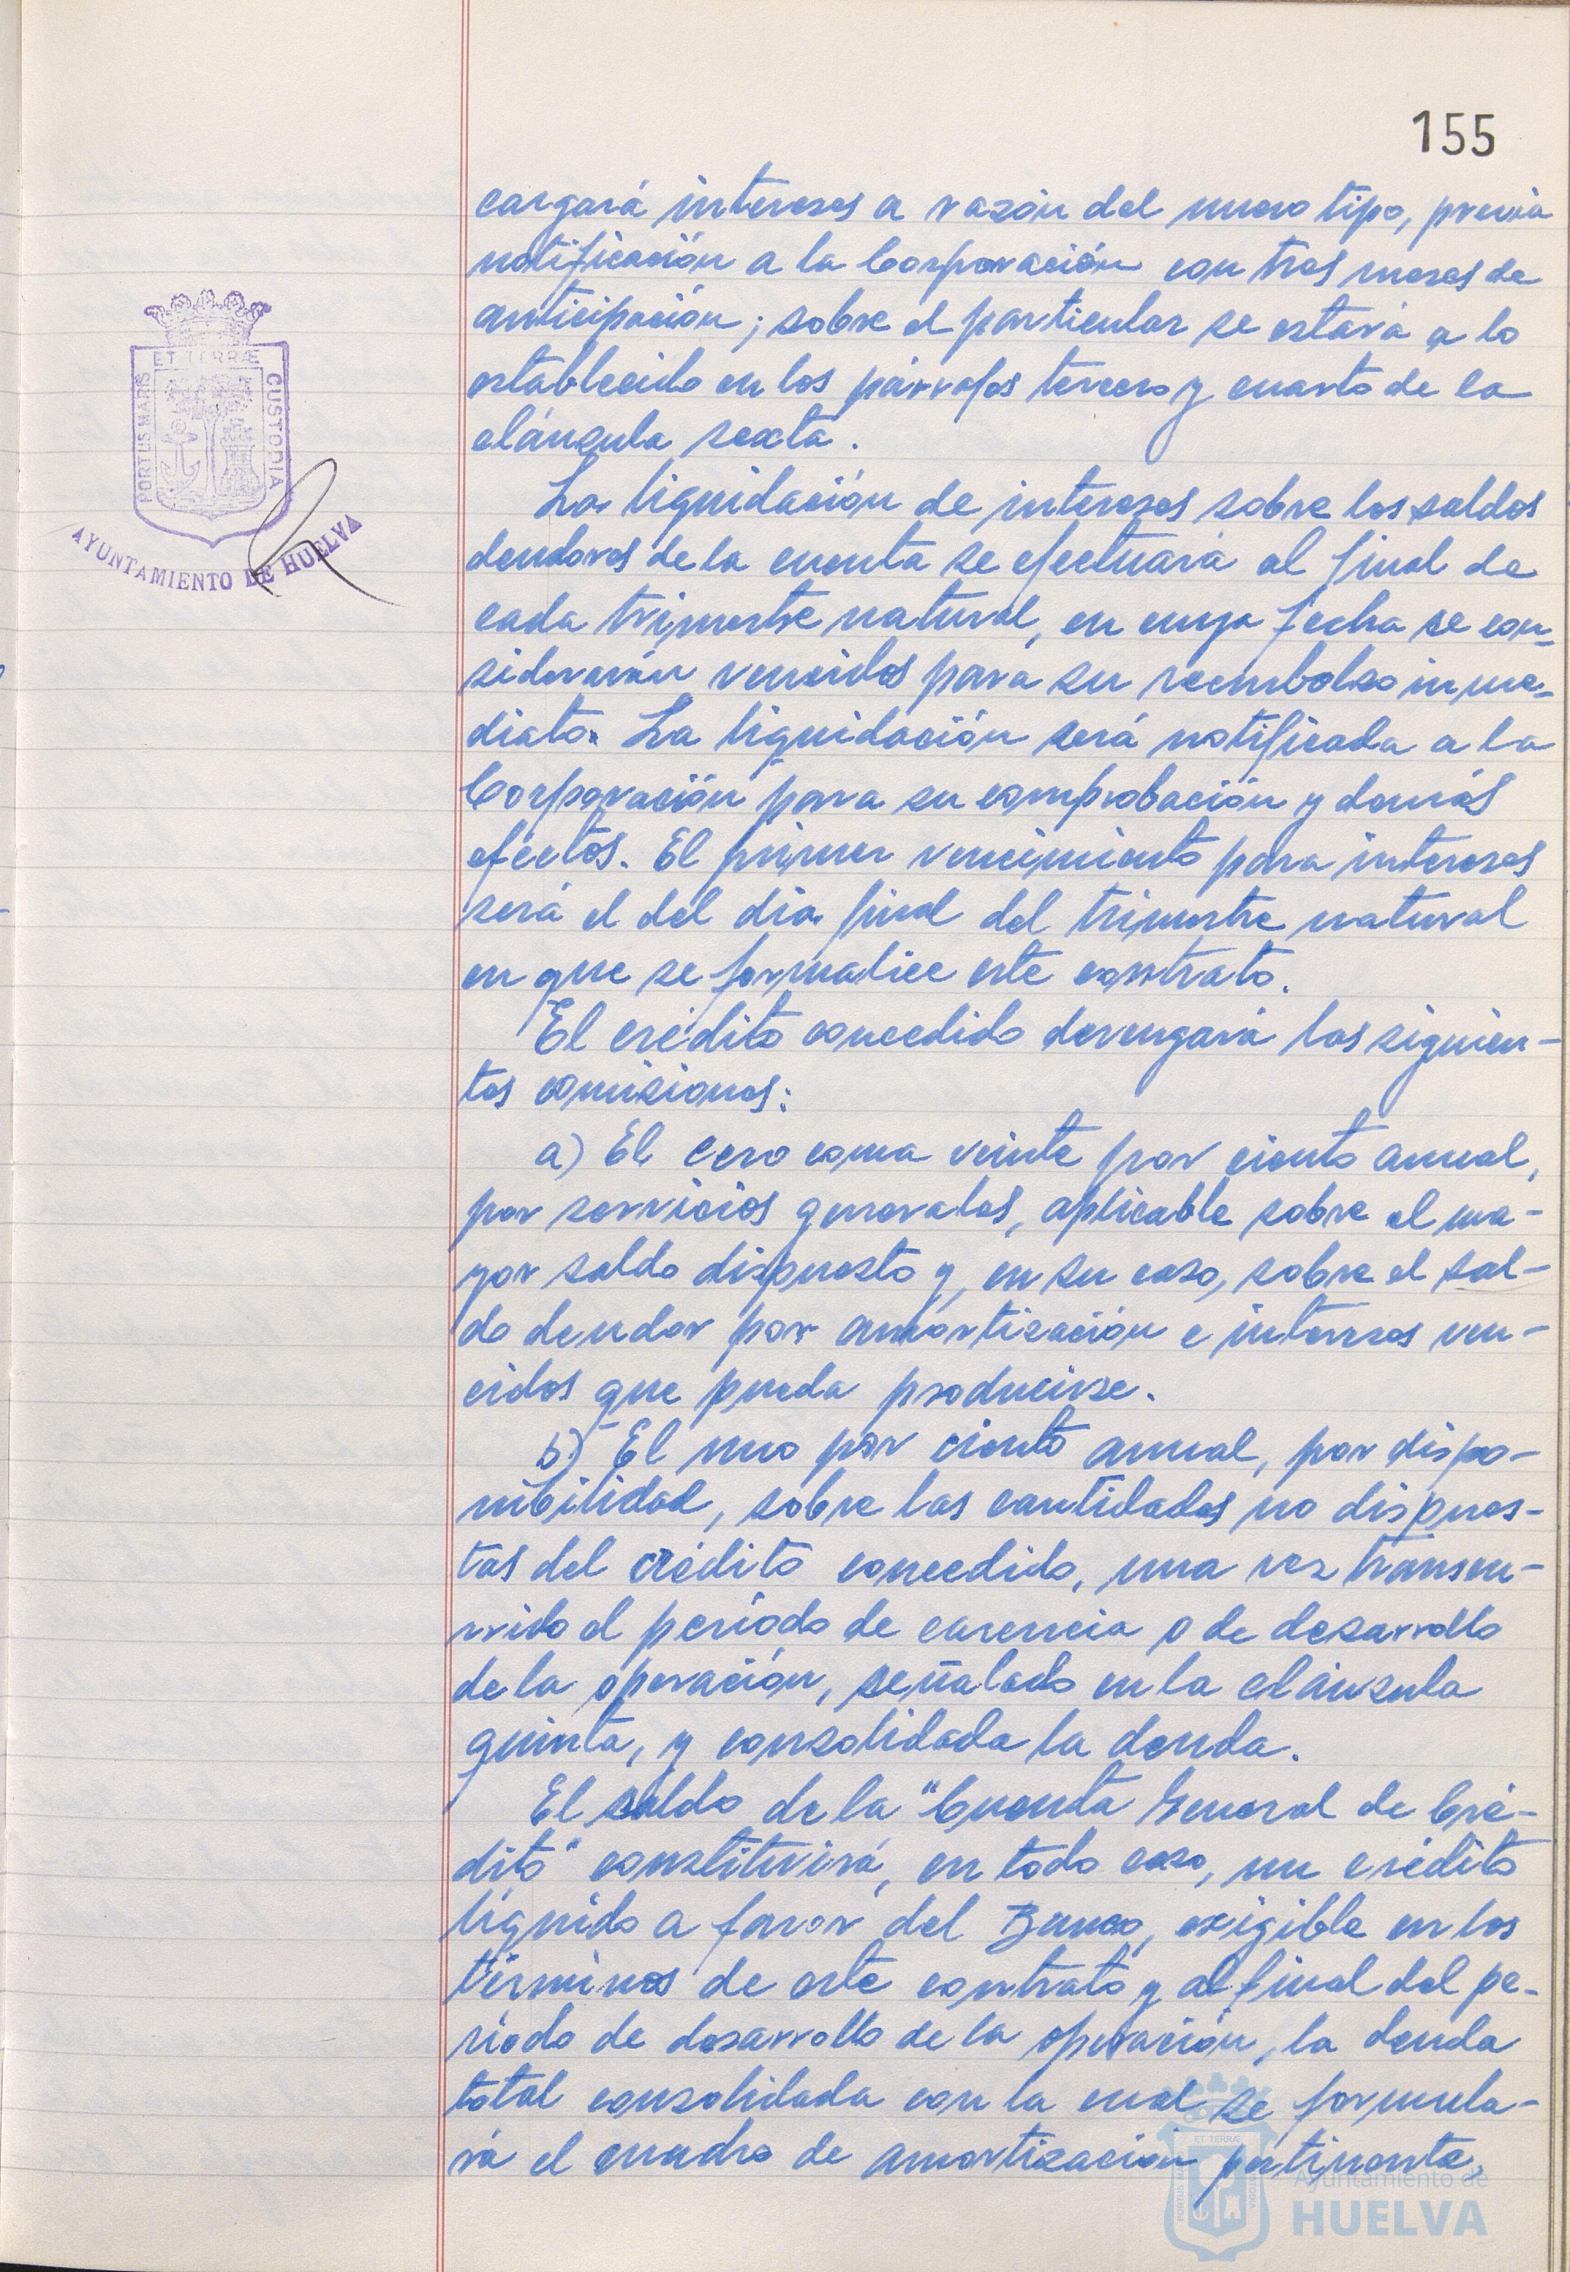 155
cargará intereses a razón del nuevo tipo, previa
notificación a la Corporación con tres meses de
anticipación; sobre el particular se estará a lo
establecido en los párrafos tercero y cuarto de la
cláusula sexta.
La liquidación de intereses sobre los saldos
deudores de la cuenta se efectuará al final de
cada trimestre natural, en cuya fecha se con-
siderarán vencidos para su reembolso inme-
diato. La liquidación será notificada a la
Corporación para su comprobación y demás
efectos. El primer vencimiento para intereses
será el del día final del trimestre natural
en que se formalice este contrato.
El crédito concedido devengará las siguien-
tes comisiones:
a) El cero coma veinte por ciento anual,
por servicios generales, aplicable sobre el ma-
yor saldo dispuesto y, en su caso, sobre el sal-
do deudor por amortización e intereses ven-
cidos que pueda producirse.
b) El uno por ciento anual, por dispo-
nibilidad, sobre las cantidades no dispues-
tas del crédito concedido, una vez transcu-
rrido el período de carencia o de desarrollo
de la operación, señalado en la cláusula
quinta, y consolidada la deuda.
El saldo de la "Cuenta General de Cré-
dito" constituirá, en todo caso, un crédito
líquido a favor del Banco, exigible en los
términos de este contrato y al final del pe-
ríodo de desarrollo de la operación, la deuda
total consolidada con la cual se formula-
rá el cuadro de amortización pertinente,
ET TERRÆ
PORTUS MARIS
CUSTODIA
AYUNTAMIENTO DE HUELVA
ET TERRÆ
Ayuntamiento de
HUELVA